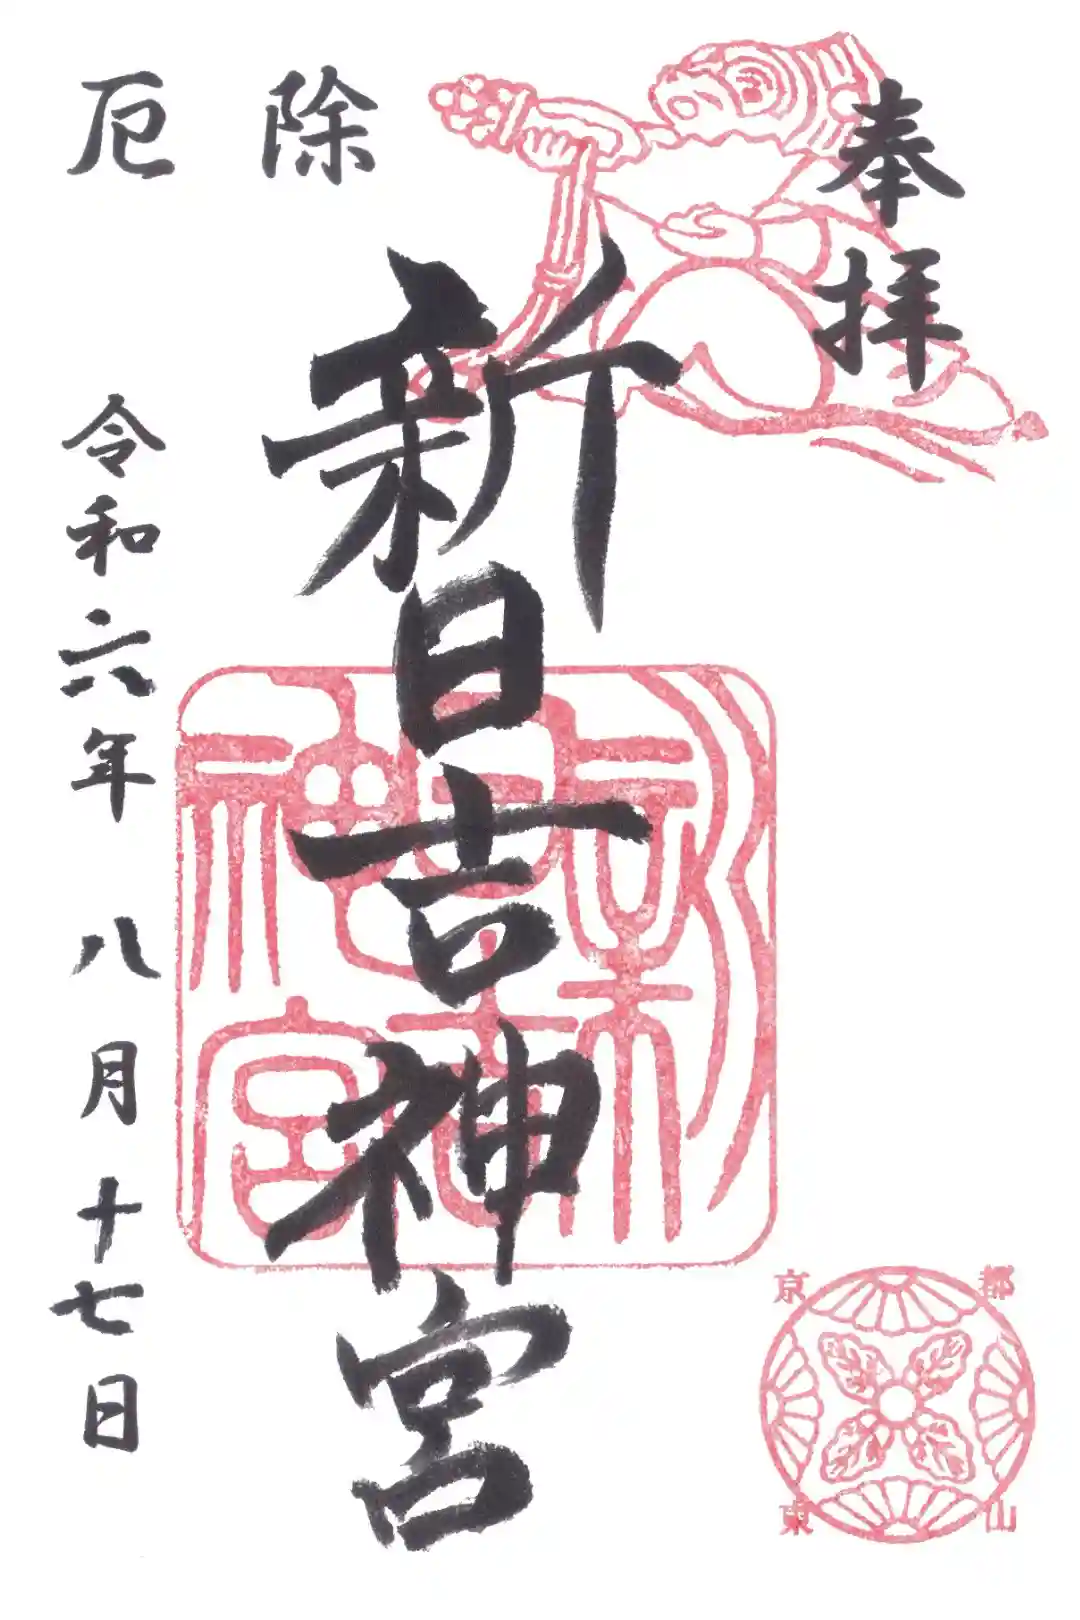 奉拝
新日吉神宮
除厄
令和六年 八月十七日
新日吉神宮
京都
東山